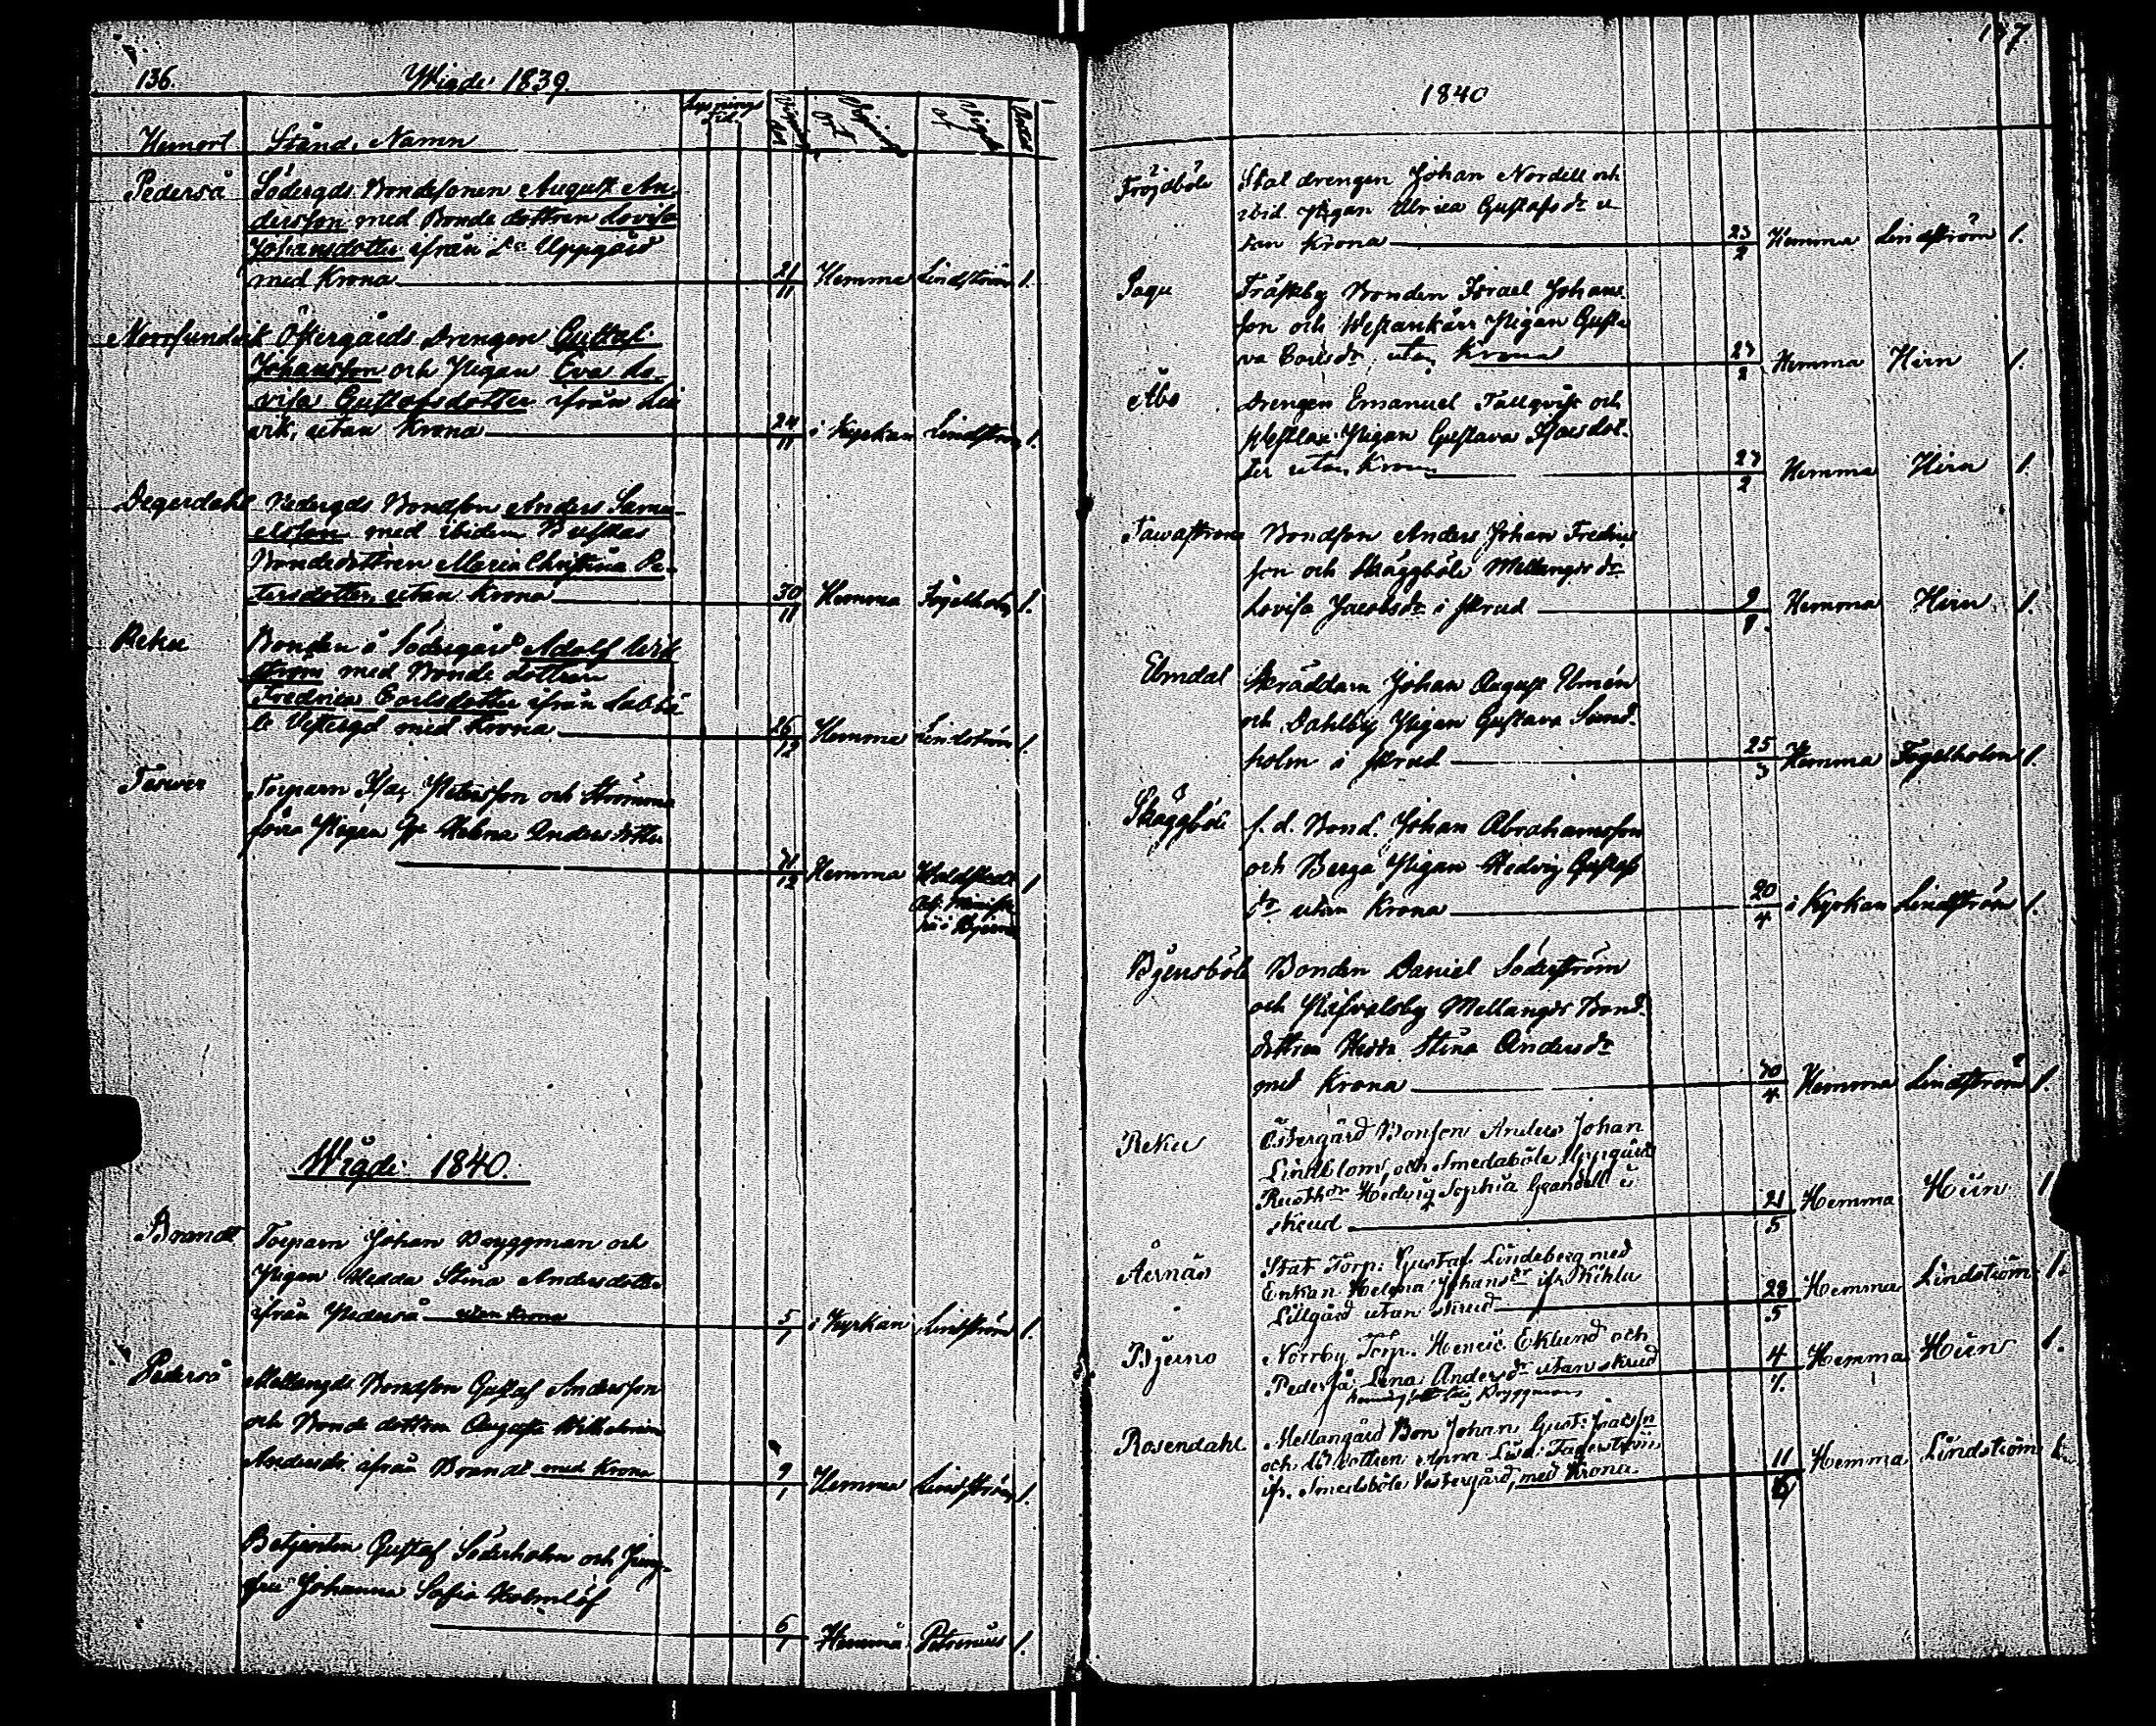 136.
Wigde 1839.
Hemort Stånd, Namn
Lysnings tid.
Pederså Södergds Bondesonen August An-
dersson med Bonde dottren Lovisa
Johansdotter ifrån Uppgård
med Krona 21/11 Hemma Lindström 1.
Norrsundvik Östergårds Drengen Gustaf
Johansson och Pigan Eva Lo-
visa Gustafsdotter ifrån
utan Krona 24/11 i Kyrkan Lindström 1.
Degerdahl Nedergds Bondson Anders Samu-
elsson med ibidem Buskas
Bondedottren Maria Christina Pe-
tersdotter, utan Krona 30/11 Hemma Fogelholm 1.
Reku Bonden å Södergård Adolf Wik-
ström med Bonde dottren
Fredrica Carlsdotter ifrån
Vestergd med Krona 26/12 Hemma Lindström 1.
Torparn Isac Petersson och Strömma
Pigan Helena Andersdotter
31/12 Hemma 1
Wigde 1840.
Brandt Torparn Johan Bryggman och
Pigan Hedda Stina Andersdotter
ifrån Pederså utan Krona 5/1 i Kyrkan Lindström 1.
Pederså Mellangds Bondson Gustaf Andersson
och Bonde dottren Augusta Wilhelmina
Andersdr. ifrån Brandt med Krona 9/1 Hemma Lindström 1.
Betjenten Gustaf Söderholm och Jung-
fru Johanna Sofia Holmlöf
6/1 Hemma Petrenius 1.
137
1840
Fröjdböle Stal drengen Johan Nordell och
ibid. Pigan Ulrica Gustafsdr u-
tan Krona 23/2 Hemma Lindström 1.
Pagu Träskby Bonden Israel Johans-
son och Westankärr Pigan Gusta-
va Carlsdr, utan Krona 27/2 Hemma Hirn 1.
Åbo Drengen Emanuel Tallqvist och
Pigan Gustava Isacsdot-
ter utan Krona 27/2 Hemma Hirn 1.
Tawastkrona Bondson Anders Johan Fredrics-
son och Skäggböle Mellangds dr
Lovisa Jacobsdr i skrud Hemma Hirn 1.
Elmdal Skräddarn Johan August Elmén
och Dahlby Pigan Gustava Sund-
holm i skrud 25/3 Hemma Fogelholm 1.
Skäggböle f. d. Bond. Johan Abrahamsson
och Berga Pigan Hedvig Gustafs
dr utan Krona 20/4 i Kyrkan Lindström 1.
Bjensböle Bonden Daniel Söderström
och Mellangds Bond-
dottren Hedda Stina Andersdr
med Krona 30/4 Hemma Lindström 1.
Reku Östergård Bonson Anders Johan
Lindblom, och Smedaböle Uppgård
Rusthdr Hedvig Sophia Grandell i
skrud 21/5 Hemma Hirn 1
Åernäs Stat Torp: Gustaf Lindeberg med
Enkan Helena Johansdr ifr Kihla
Lillgård utan skrud 28/5 Hemma Lindström 1.
Bjerno Norrby Torp. Henric Eklund och
Pederså Lena Andersdr utan skrud 4/7. Hemma Hirn 1.
Bryggman
Rosendahl Mellangård Bon Johan Gust: Isacssn
och dottren Anna Lovisa Fagerström
ifr. Smedsböle Vestergård, med Krona 11/6 Hemma Lindström 1.